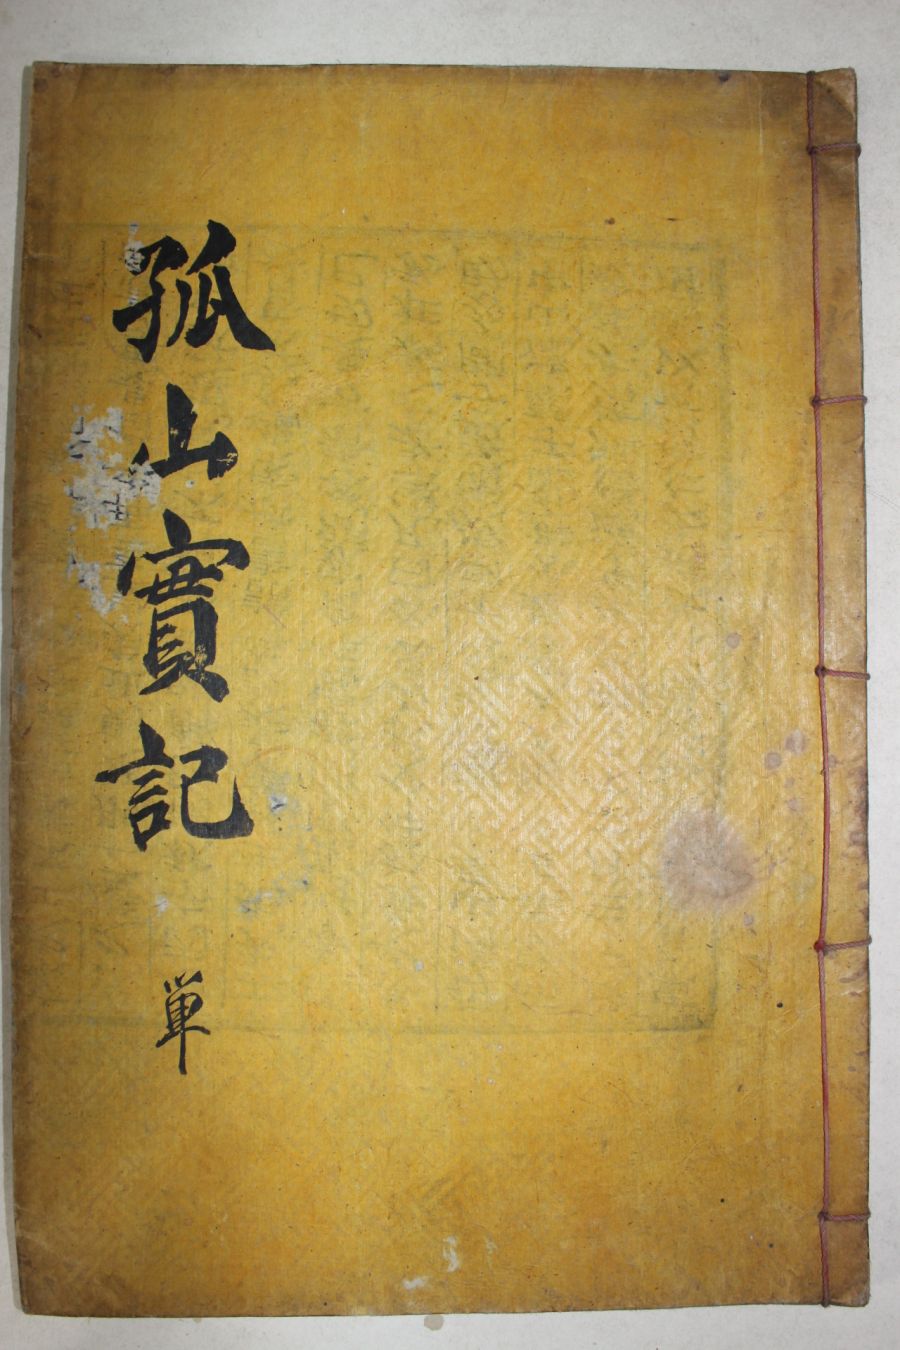 孤山實記
單